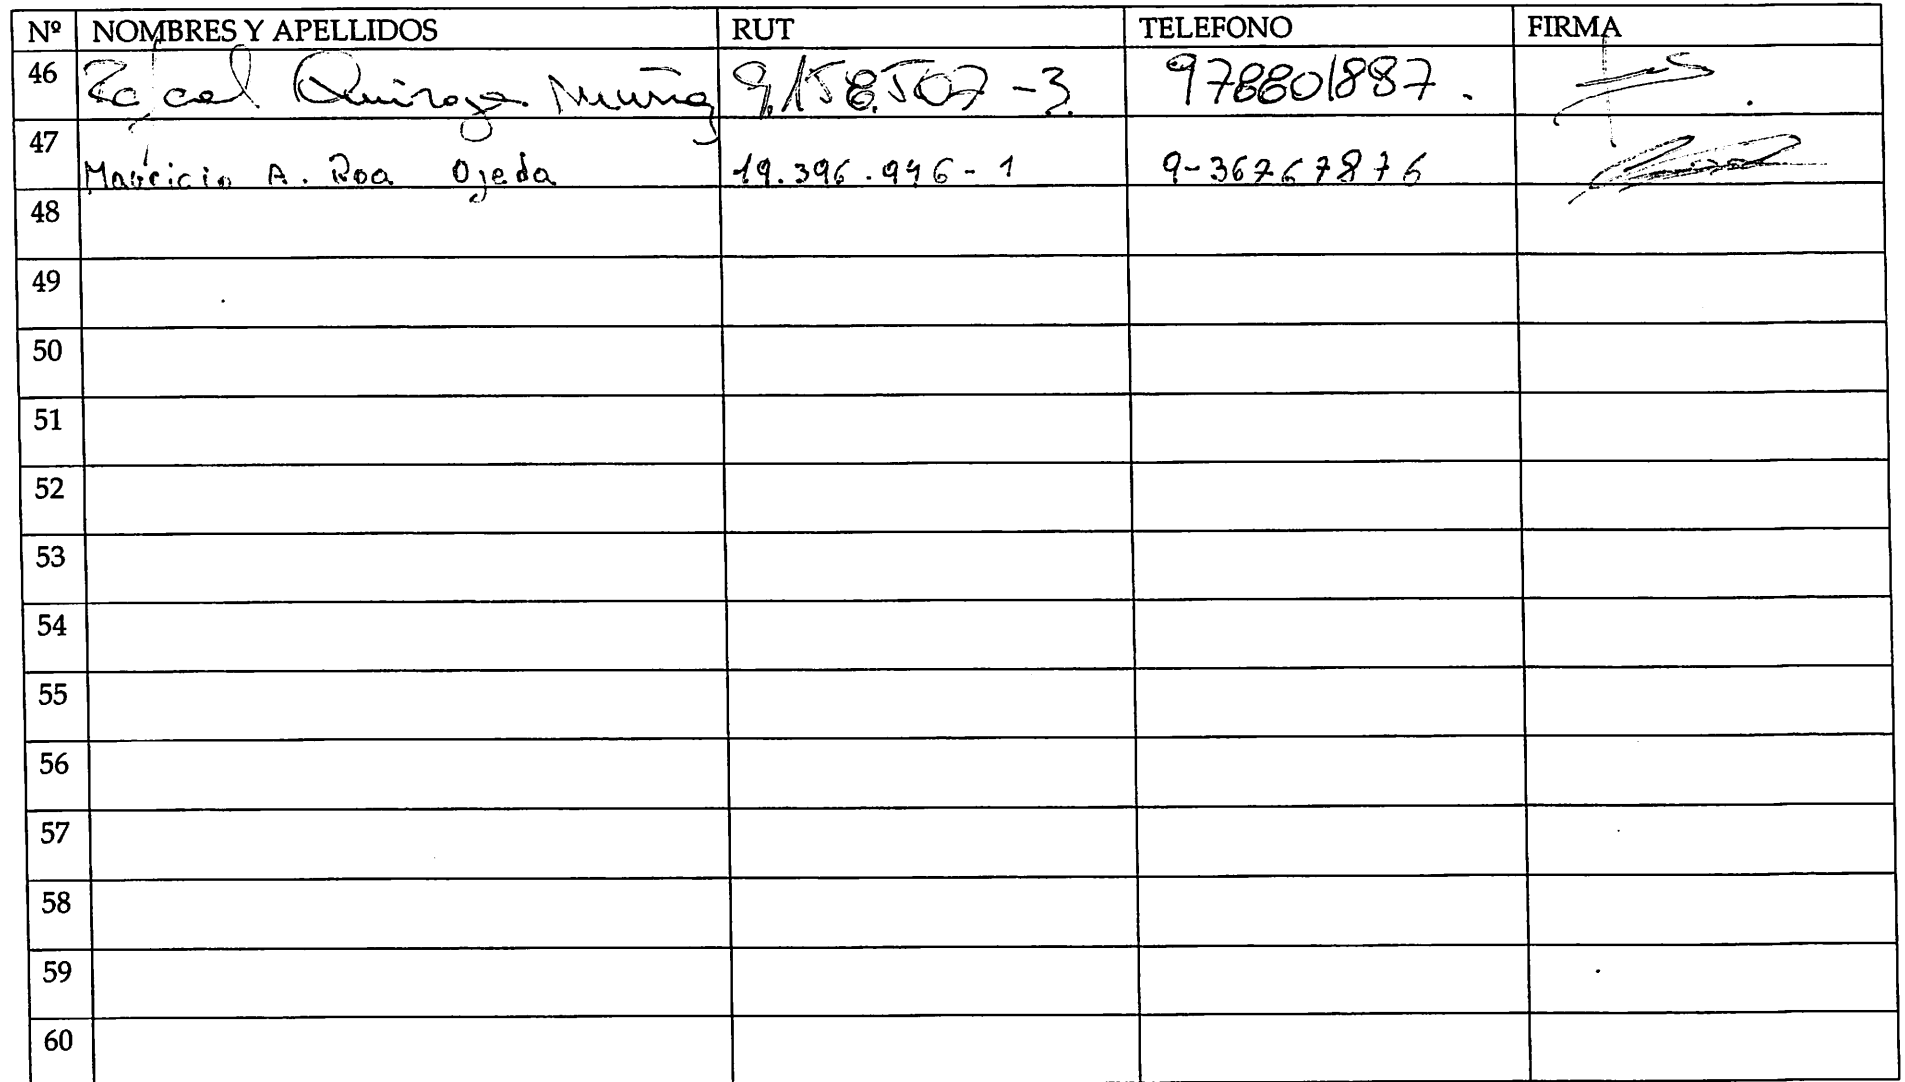 Nº NOMBRES Y APELLIDOS RUT TELEFONO FIRMA
46 Rafael Quiroga Muñoz 9.158.507-3 978801887.
47 Mauricio A. Roa Ojeda 19.396.946-1 9-36767876
48
49
50
51
52
53
54
55
56
57
58
59
60